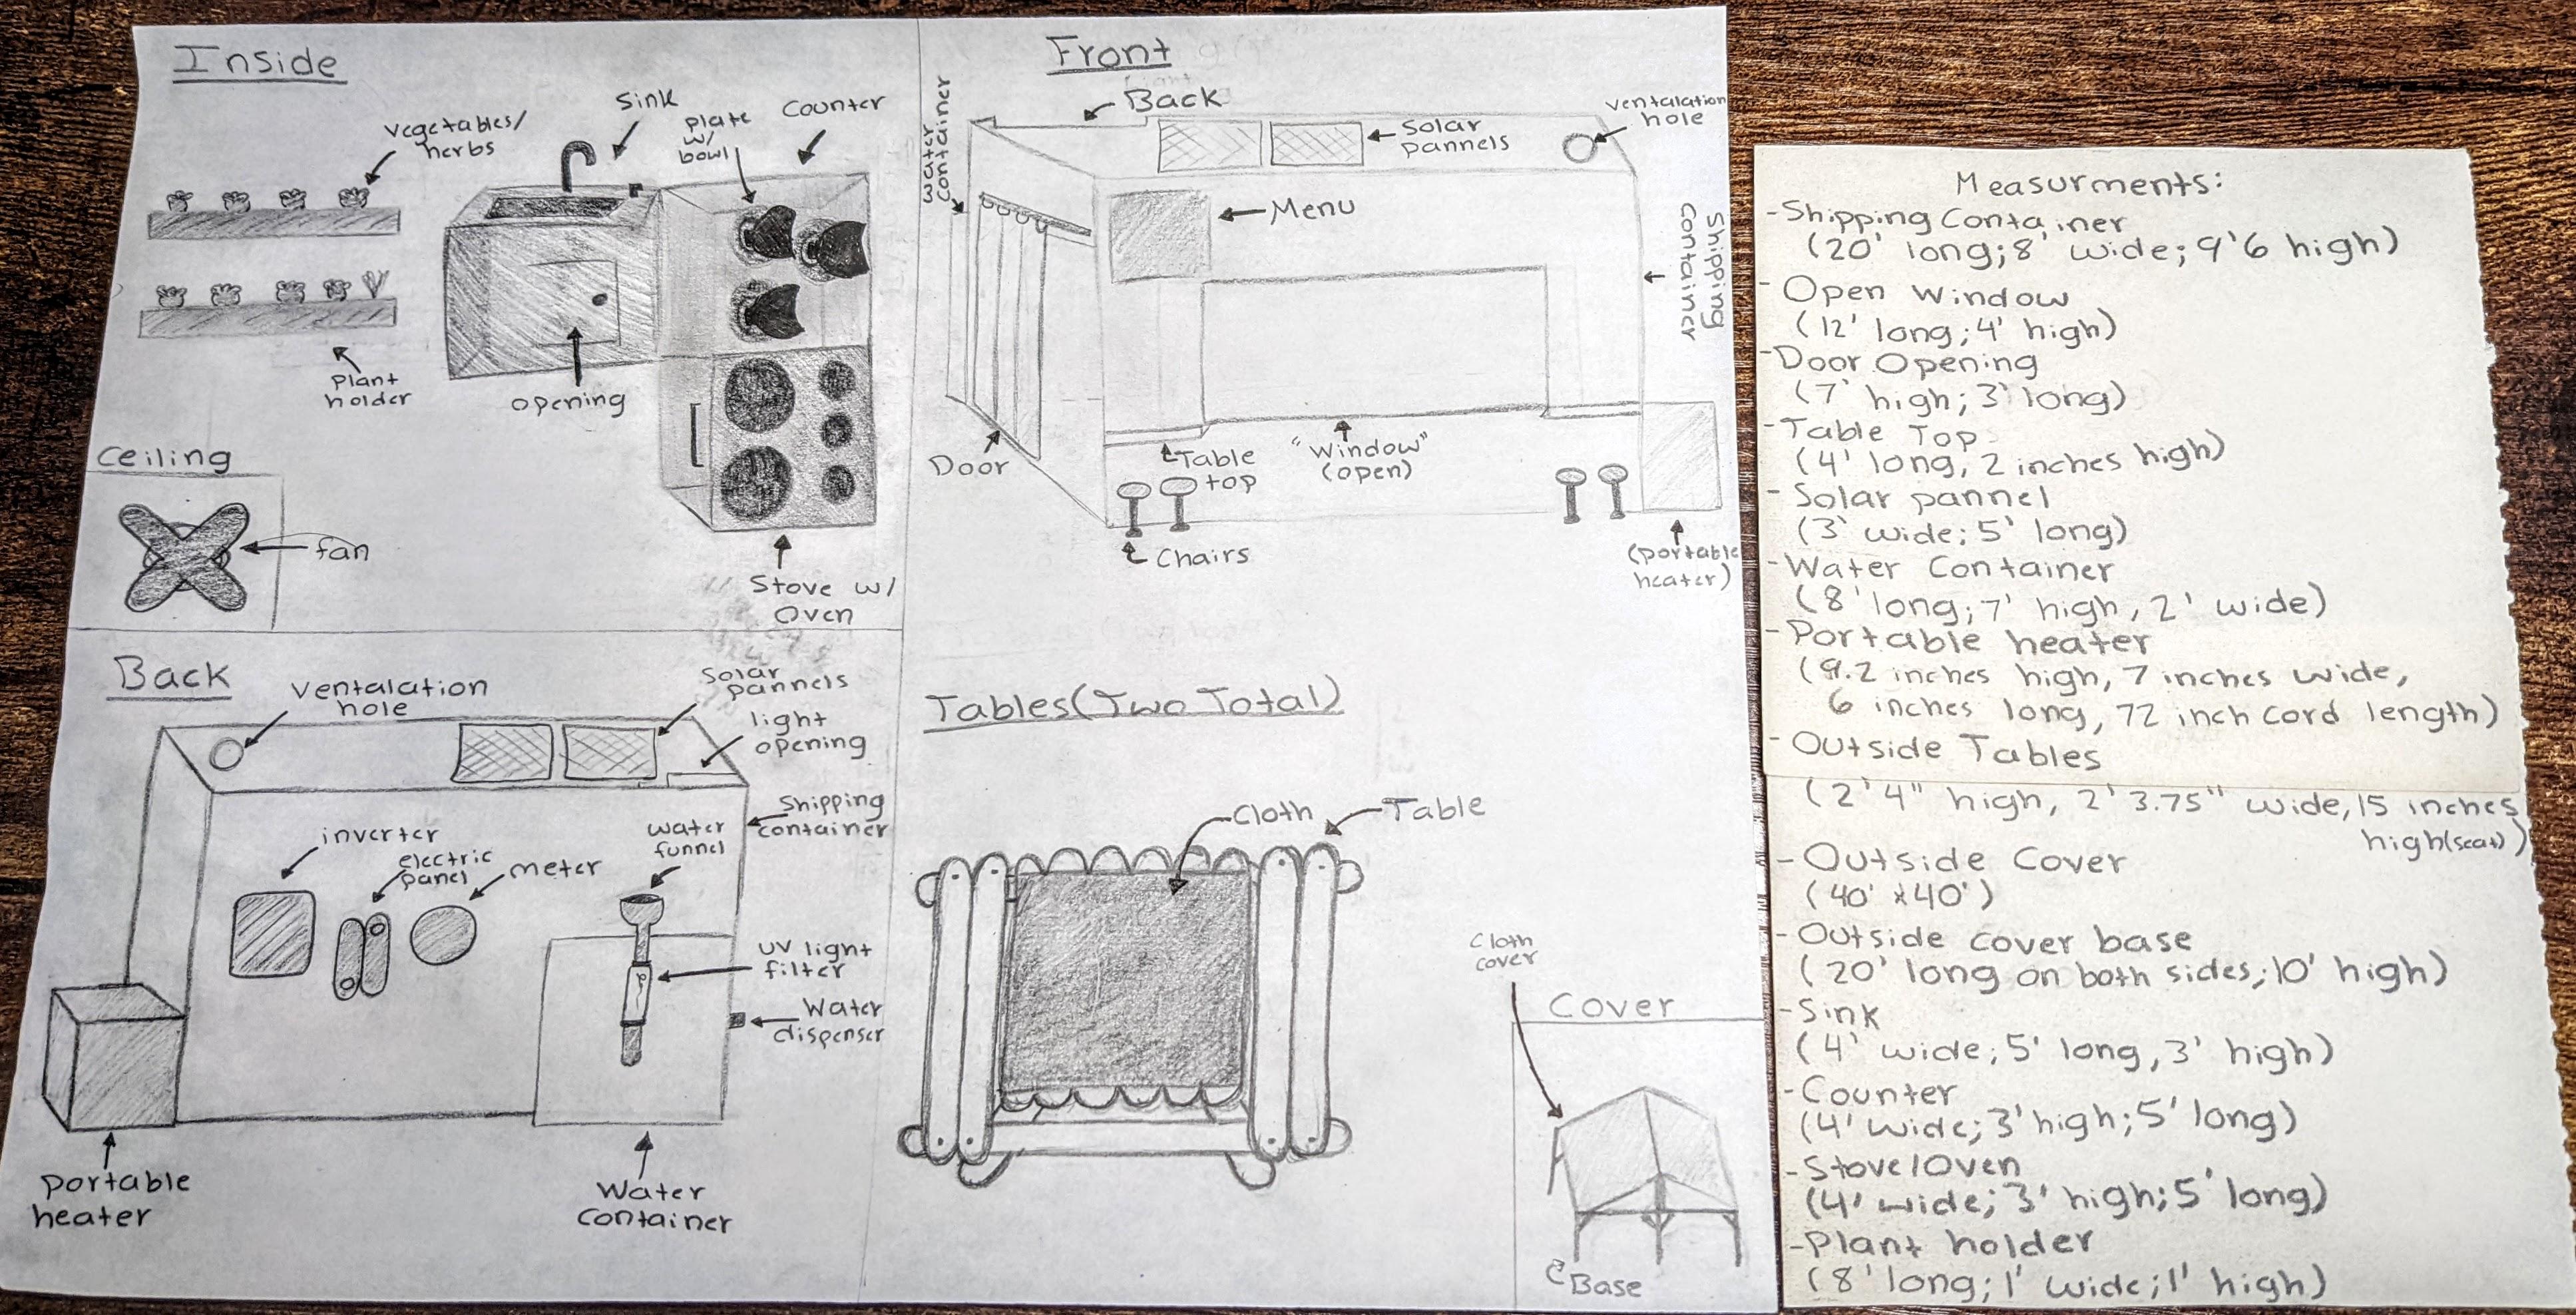 Inside
vegetables/
herbs
Sink
plate
w/
bowl
counter
plant
holder
opening
Stove w/
Oven
Ceiling
fan
Front
Back
water
container
Solar
pannels
ventalation
hole
Menu
Shipping
container
Door
Table
top
"Window"
(open)
Chairs
(portable
heater)
Back
ventalation
hole
solar
pannels
light
opening
Shipping
container
inverter
electric
panel
meter
water
funnel
UV light
filter
Water
dispenser
portable
heater
Water
container
Tables(Two Total)
Cloth
Table
Cloth
cover
Cover
Base
Measurments:
-Shipping Container
(20' long;8' wide; 9'6 high)
-Open Window
(12' long; 4' high)
-Door Opening
(7' high; 3' long)
-Table Top
(4' long, 2 inches high)
-Solar pannel
(3' wide; 5' long)
-Water Container
(8' long; 7' high, 2' wide)
-Portable heater
(9.2 inches high, 7 inches wide,
6 inches long, 72 inch cord length)
-Outside Tables
(2'4" high, 2'3.75" wide, 15 inches
high(seat))
-Outside Cover
(40' x40')
-Outside cover base
(20' long on both sides; 10' high)
-Sink
(4' wide; 5' long, 3' high)
-Counter
(4' wide; 3' high; 5' long)
-Stove/Oven
(4' wide; 3' high; 5' long)
-Plant holder
(8' long; 1' wide; 1' high)